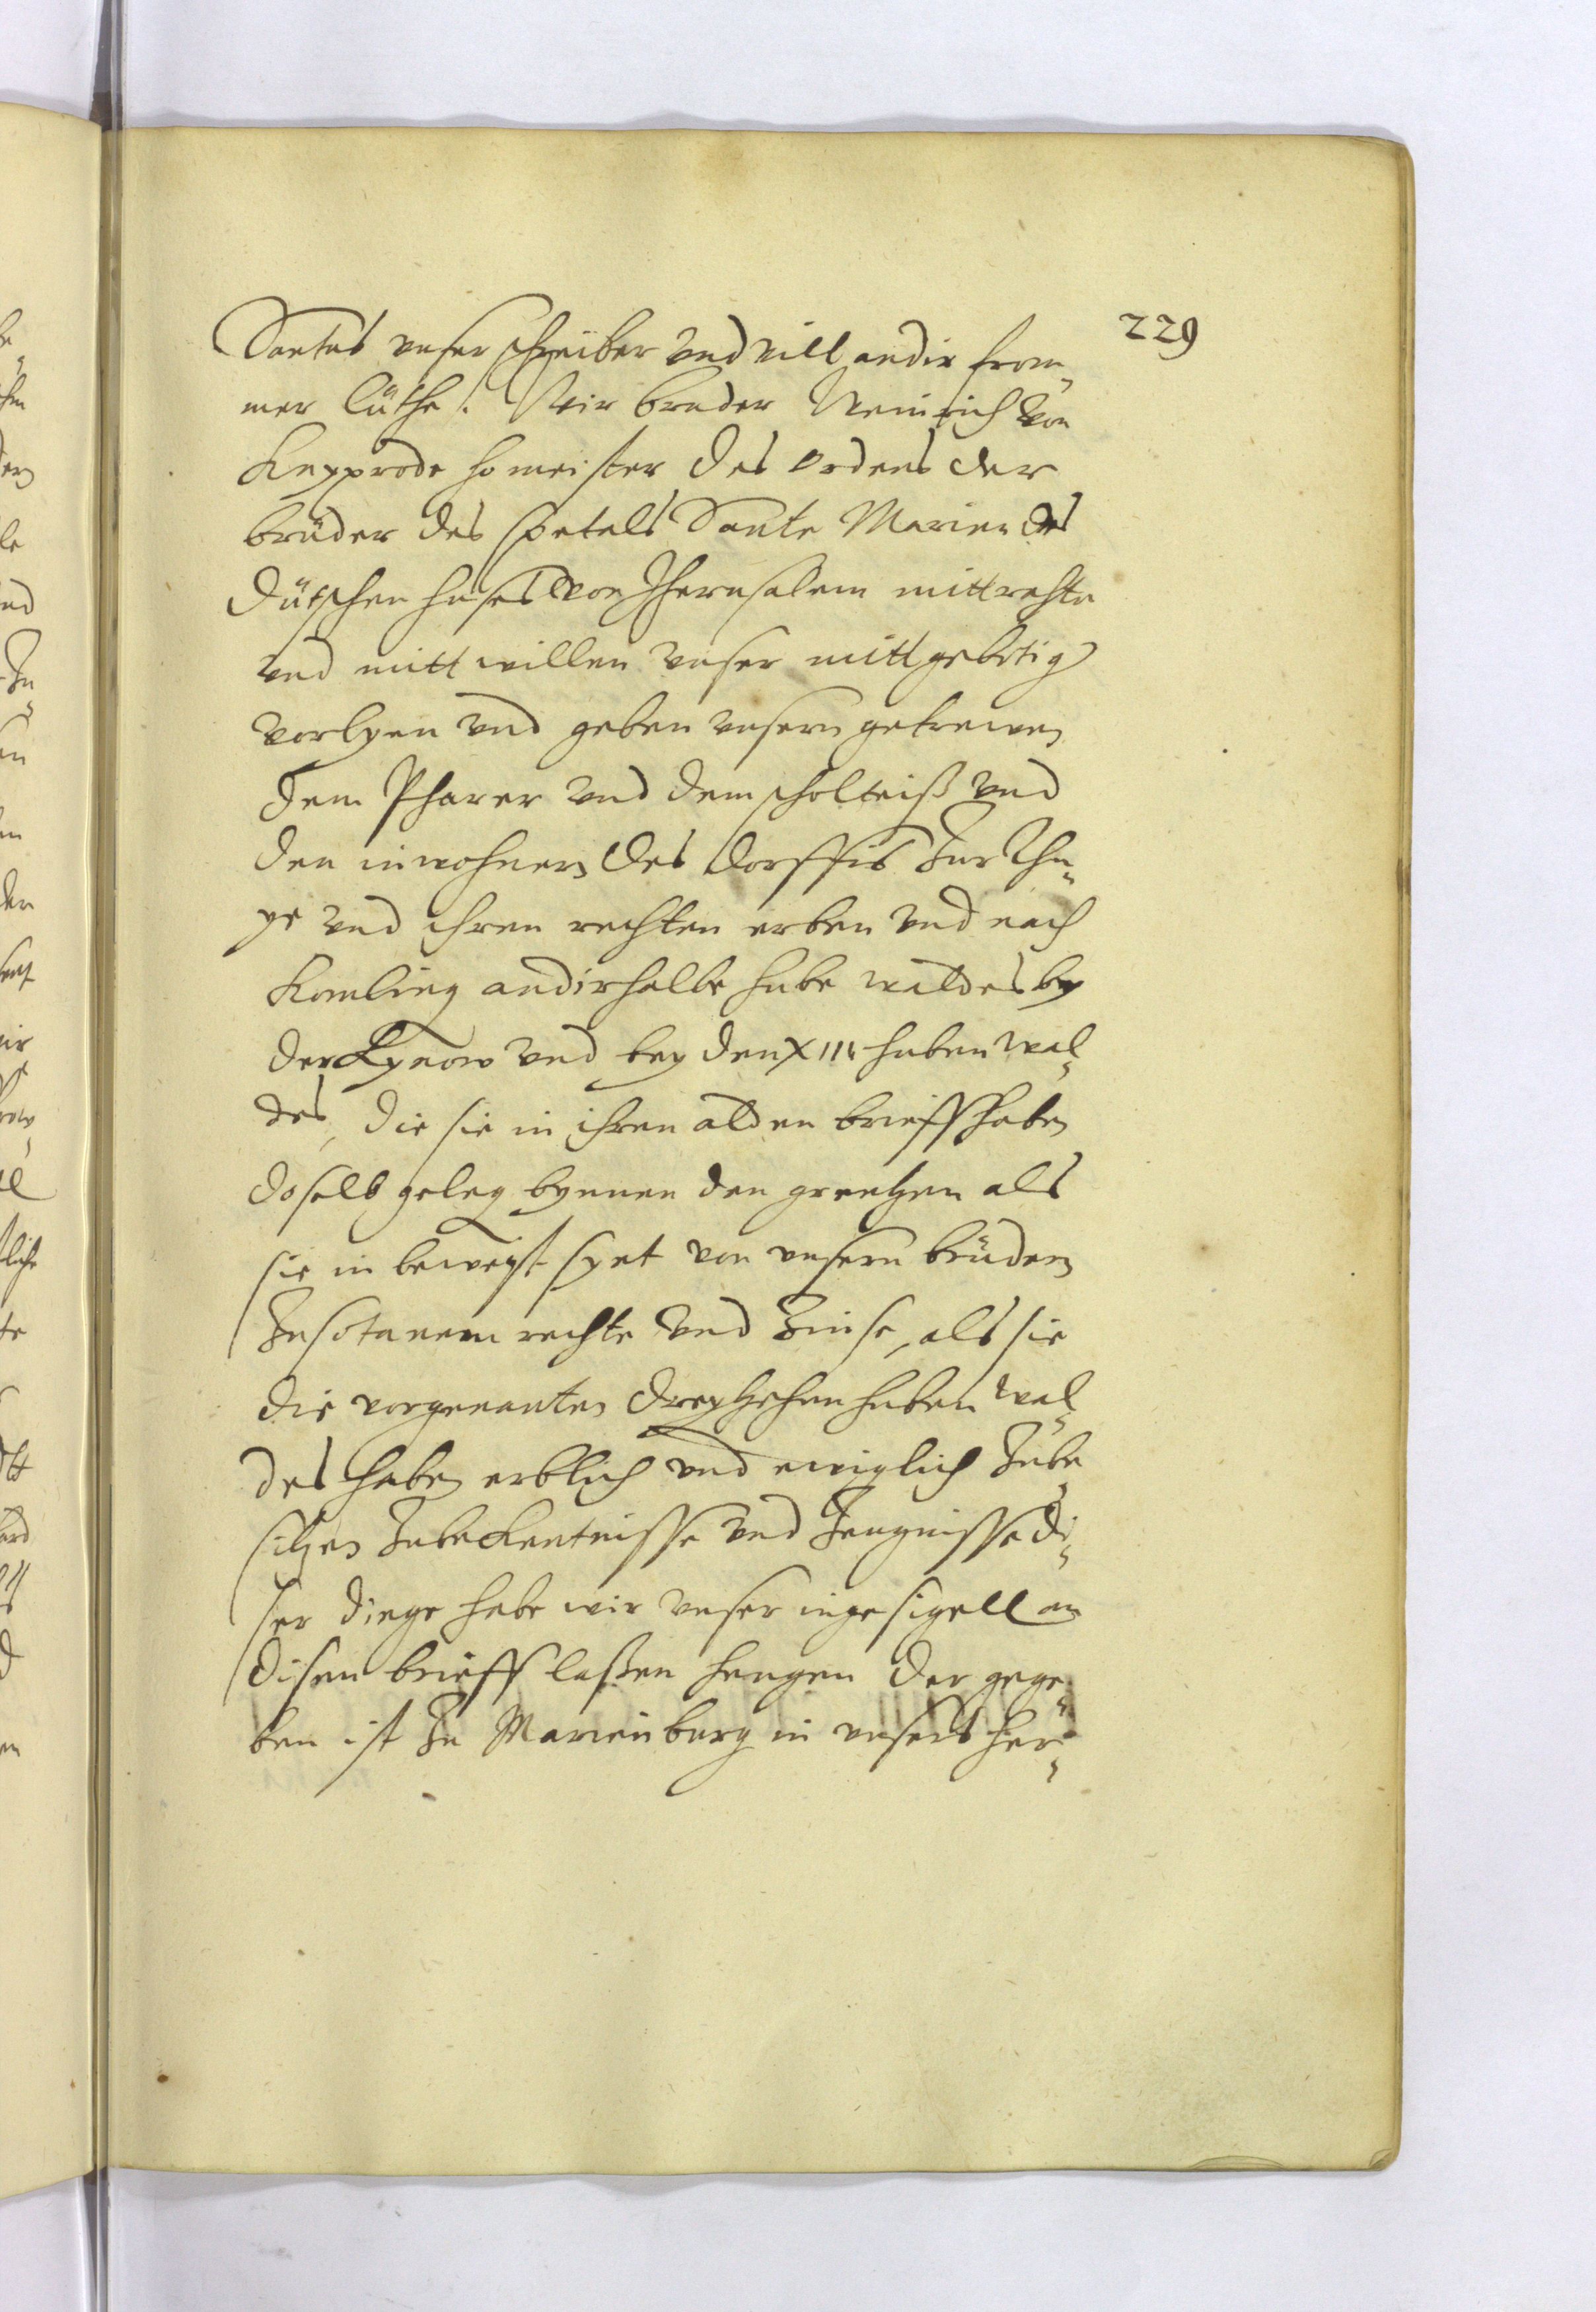 229
Santes unser schreiber und vill andir from¬
mer lüthe. Wir bruder Weinrich von
Knyprode homeister des ordens der
brüder des spetals Sante Marien des
Dütschen huses von Jherusalem mitt rehte
und mitt willen unser mittgebitig
vorlyen und geben unsern getrewen
dem Pharer und dem scholteiß und
den inwohnern des dorffis Zur Thy¬
ge und ihren rechten erben und nach
komling andirhalbe hube waldes by
der Kynow und bey den XIII huben wal¬
des, die sie in ihren alden brieff haben
doselb geleg bynnen den grentzen als
sie in beweyst synt von unsern brüdern
Zusotanem rechte und Zinse, als sie
die vorgenanten dreytzehen huben wal¬
des haben erblich und ewiglich Zube¬
sitzen Zubekentnisse und Zeugnisse di¬
ser dinge habe wir unser ingesigell an
disen brieff laßen hengen der gege¬
ben ist Zu Marienburg in unsers her¬